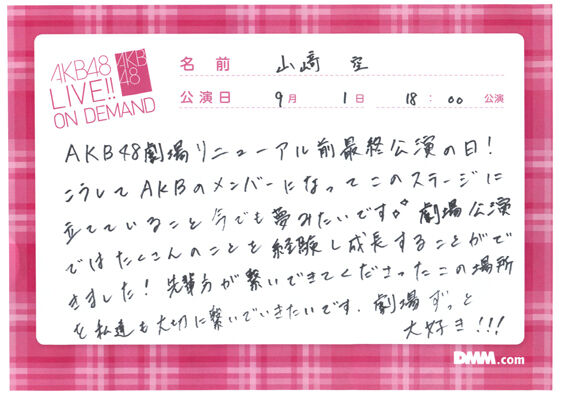 AKB48
LIVE!!
ON DEMAND
AKB
48
名前 山﨑 空
公演日 9月 1日 18:00 公演
AKB48劇場リニューアル前最終公演の日!
こうしてAKBのメンバーになってこのステージに
立てていること今でも夢みたいです。劇場公演
ではたくさんのことを経験し成長することがで
きました!先輩方が繋いできてくださったこの場所
を私達も大切に繋いでいきたいです。劇場ずっと
大好き!!!
DMM.com